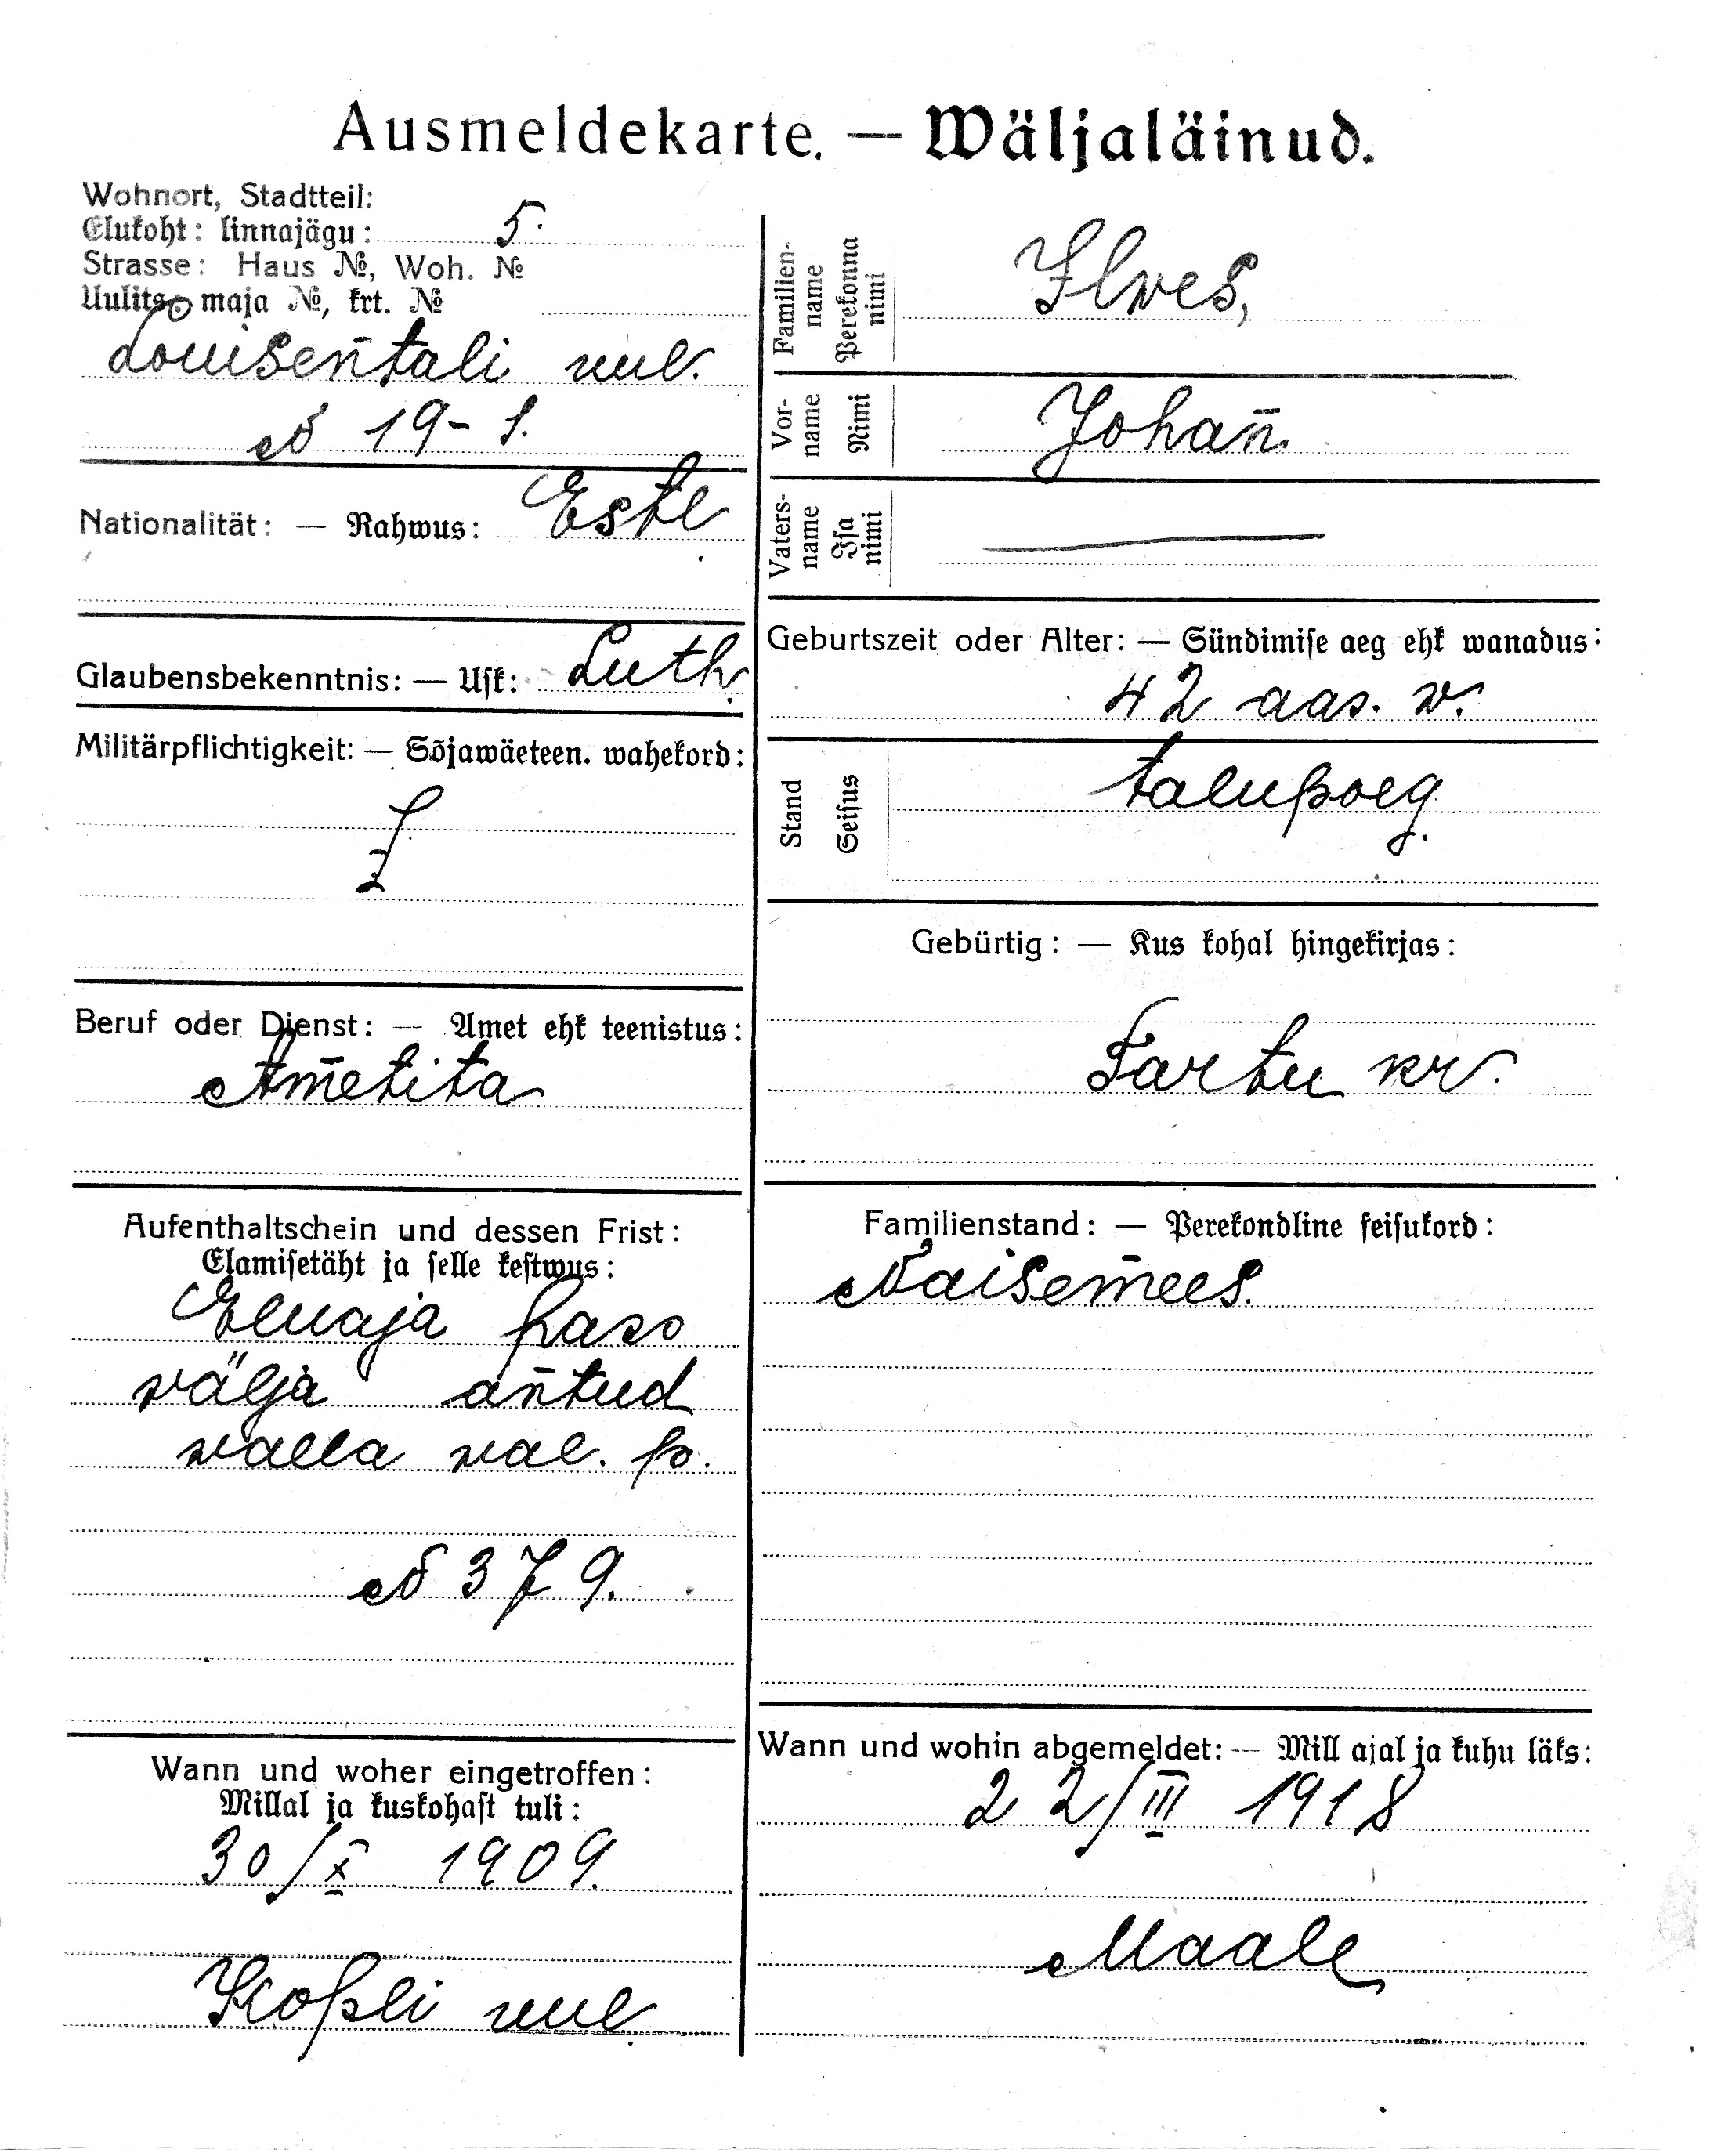 Ausmeldekarte. — Wäljaläinud.
Wohnort, Stadtteil:
Elukoht: linnajägu: 5.
Strasse: Haus №, Woh. №
Uulits, maja №, krt. №
Louisentali uul.
№ 19 - 1.
Nationalität: — Rahwus: Estl
Glaubensbekenntnis: — Usk: Luth.
Militärpflichtigkeit: — Sõjawäeteen. wahekord:
Beruf oder Dienst: — Amet ehk teenistus:
Ametita
Aufenthaltschein und dessen Frist:
Elamisetäht ja selle kestwus:
Eluaja pass
välja antud
walla wal. p.
№ 379.
Wann und woher eingetroffen:
Millal ja kuskohast tuli:
30/X 1909.
Kopli uul.
Familien-
name
Perekonna
nimi
Ilves,
Vor-
name
Nimi
Johan̄
Vaters-
name
Isa
nimi
—
Geburtszeit oder Alter: — Sündimise aeg ehk wanadus:
42 aas. v.
Stand
Seisus
talupoeg.
Gebürtig: — Kus kohal hingekirjas:
Tartu kr.
Familienstand: — Perekondline seisukord:
Naisemees.
Wann und wohin abgemeldet: — Mill ajal ja kuhu läks:
22/III 1918
Maale